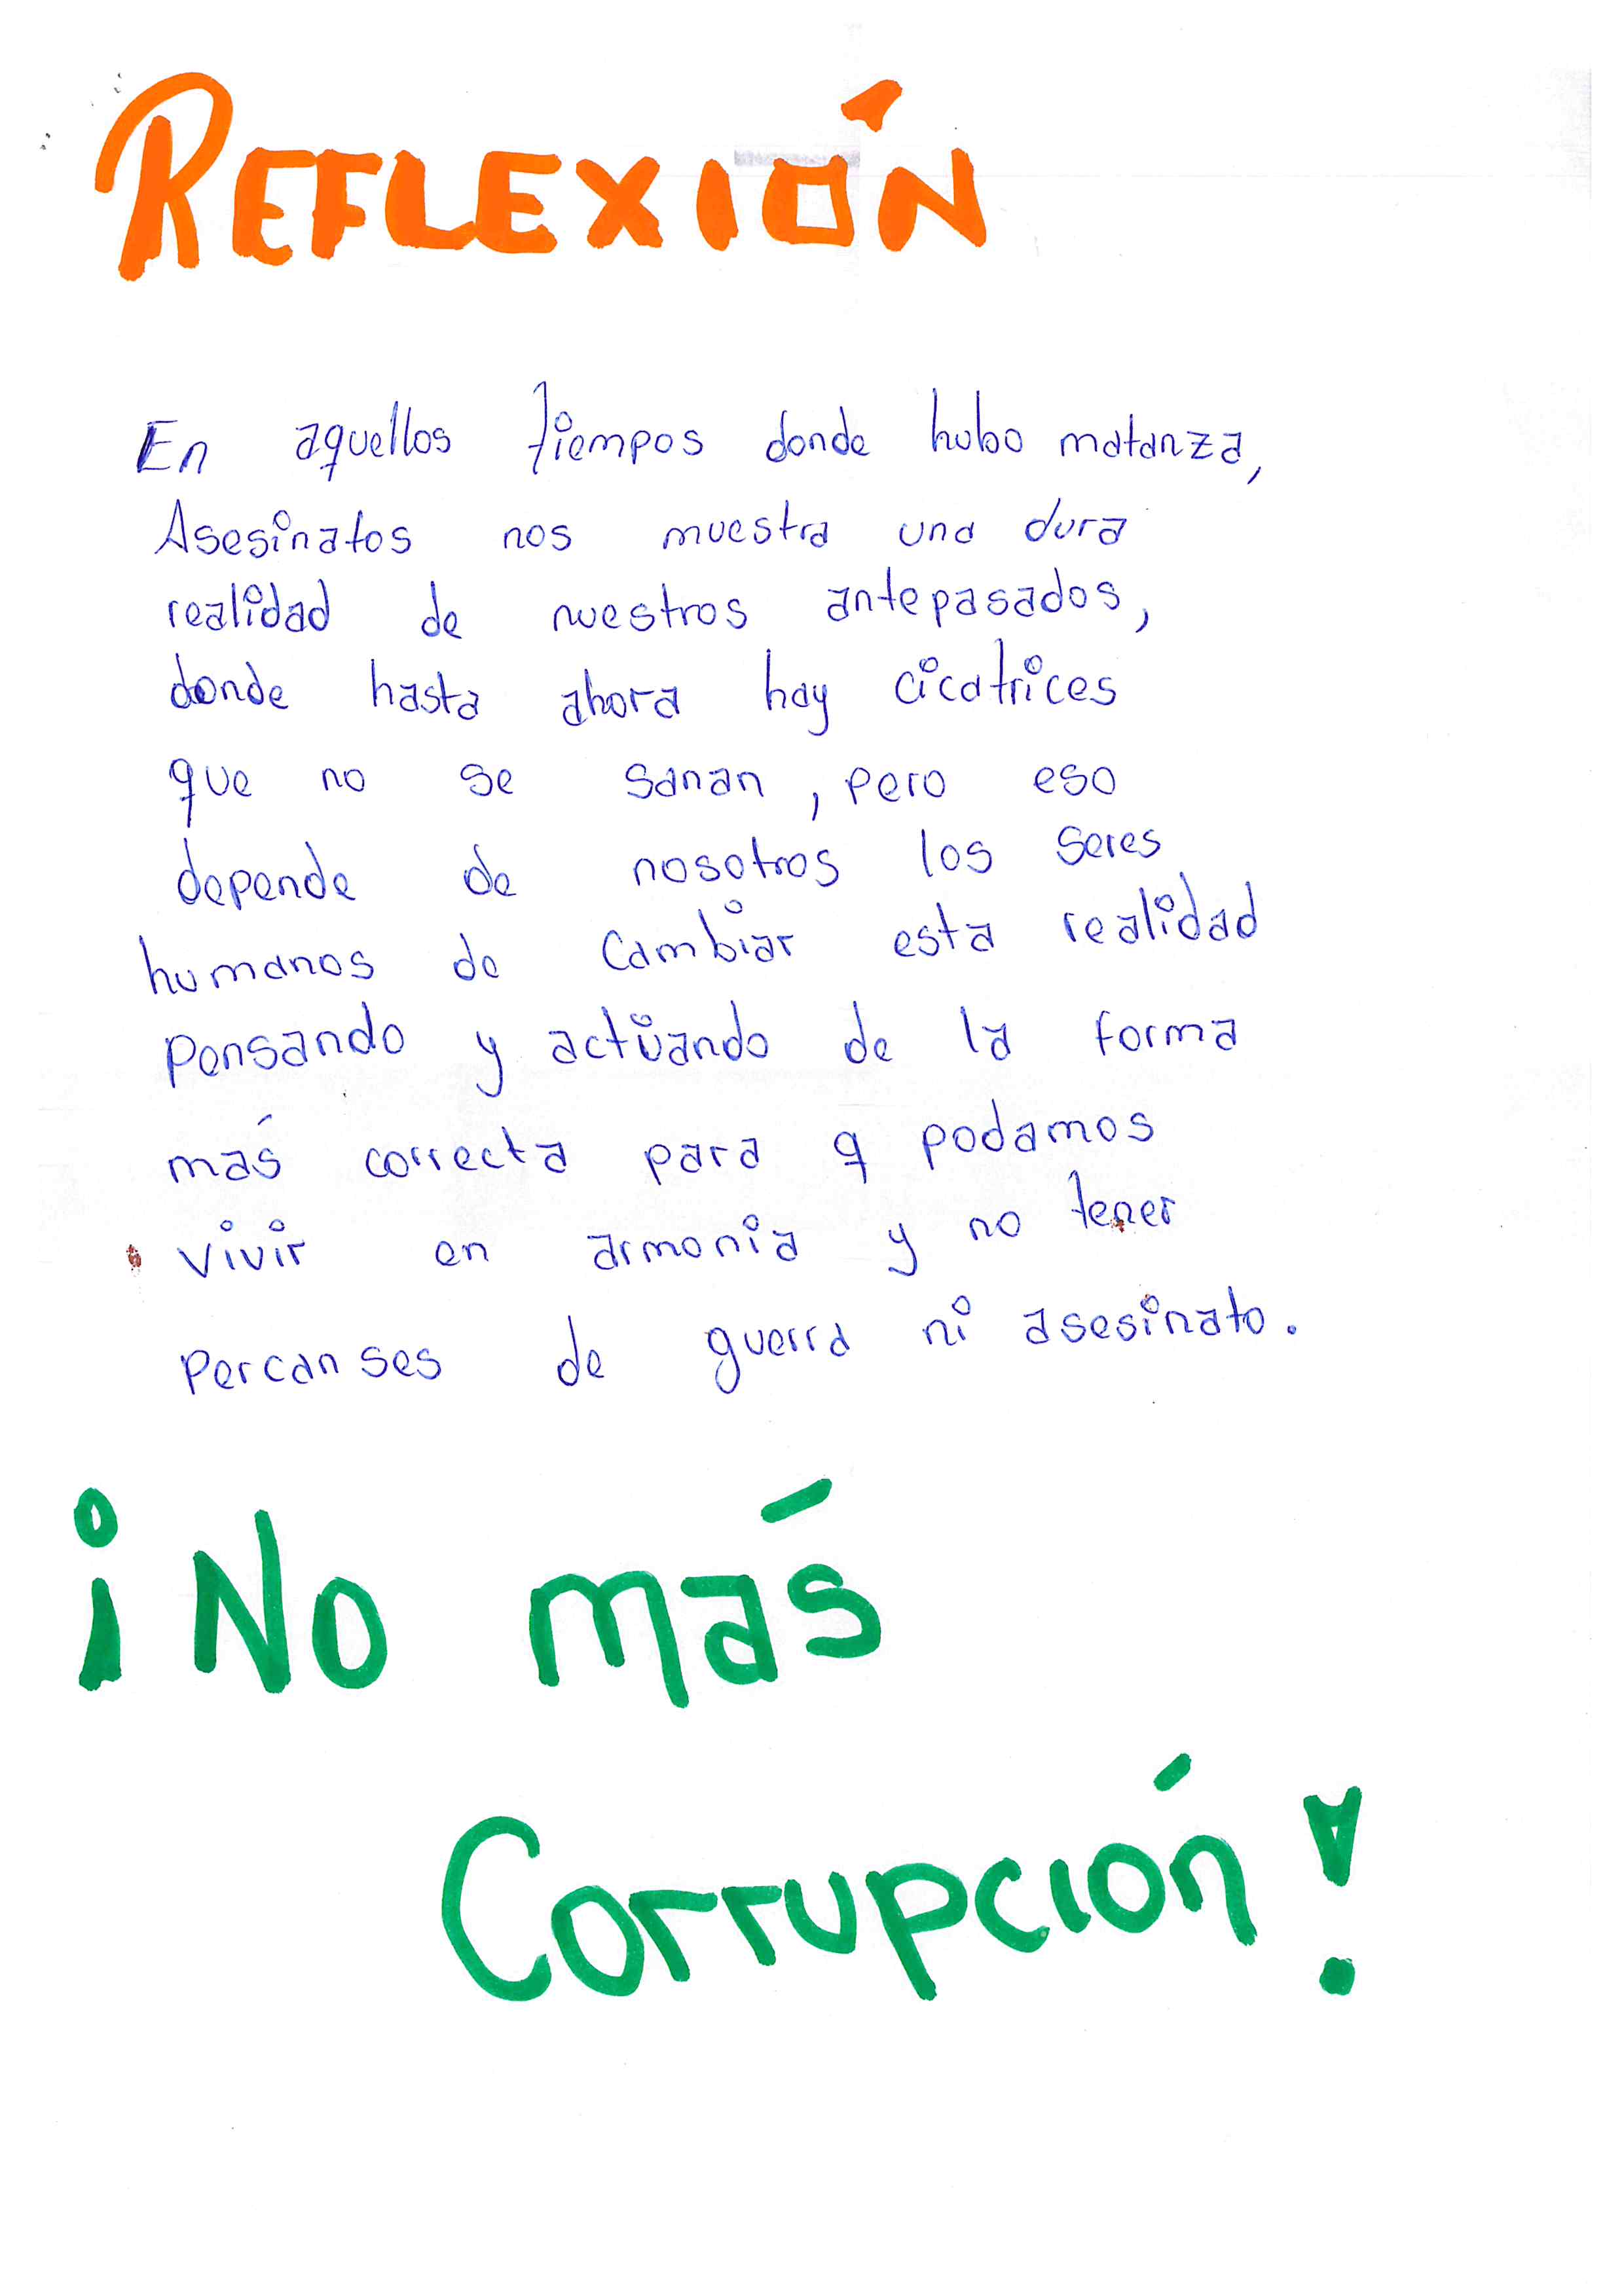 REFLEXIÓN
En aquellos tiempos donde hubo matanza,
Asesinatos nos muestra una dura
realidad de nuestros antepasados,
donde hasta ahora hay cicatrices
que no se sanan, pero eso
depende de nosotros los seres
humanos de cambiar esta realidad
pensando y actuando de la forma
más correcta para q podamos
vivir en armonia y no tener
percanses de guerra ni asesinato.
¡No más
Corrupción!